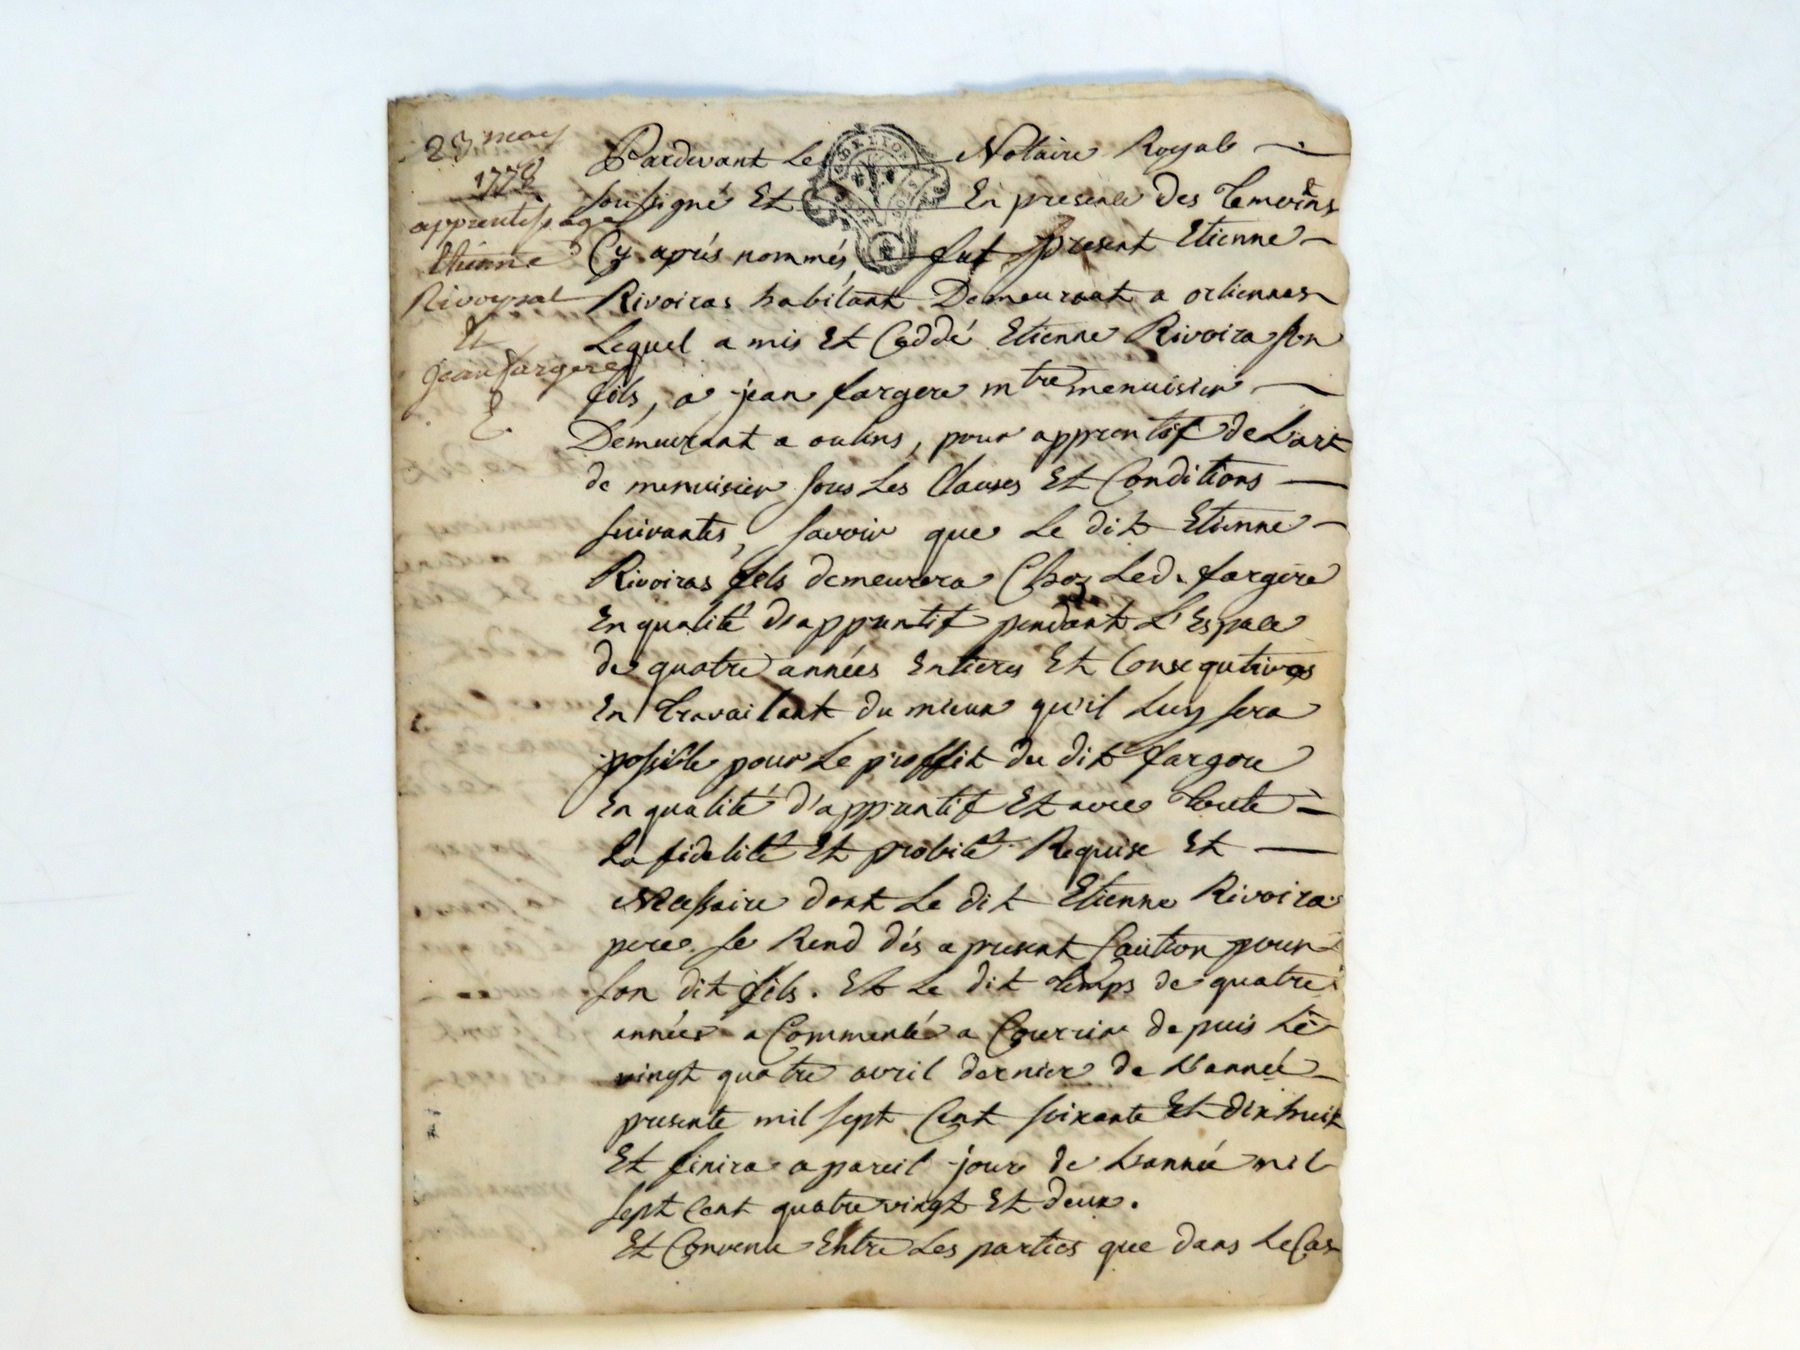 23 may
1778
apprentissage
Etienne
Rivoyrat
Et
jean fargere
Pardevant Le Notaire Royal
soussigné Et En presence Des temoins
Cy aprés nommés fut present Etienne
Rivoiras habitant Demeurant a orliennas
Lequel a mis Et Ceddé Etienne Rivoira son
fils, a jean fargere mtre menuisier
Demeurant a oulins, pour apprentif de L'art
de menuisier sous Les Clauses Et Conditions
suivantes, savoir que Le dit Etienne
Rivoiras fils demeurera Chez Led. fargere
En qualité d'apprentif pendant L'Espace
de quatre années Entieres Et Consequtives
En travailant du mieux qu'il Luy sera
possible pour Le proffit du dit fargere
En qualité d'apprentif Et avec toute
La fidelité Et probité Requise Et
Necessaire dont Le dit Etienne Rivoiras
pere se Rend dés a present Caution pour
son dit fils. Et Le dit temps de quatre
années a Commencé a Courrir depuis Le
vingt quatre avril dernier de L'année
presente mil sept Cent soixante Et dix huit
Et finira a pareil jour de L'année mil
sept Cent quatre vingt Et deux.
Et Convenu Entre Les parties que dans Le Cas